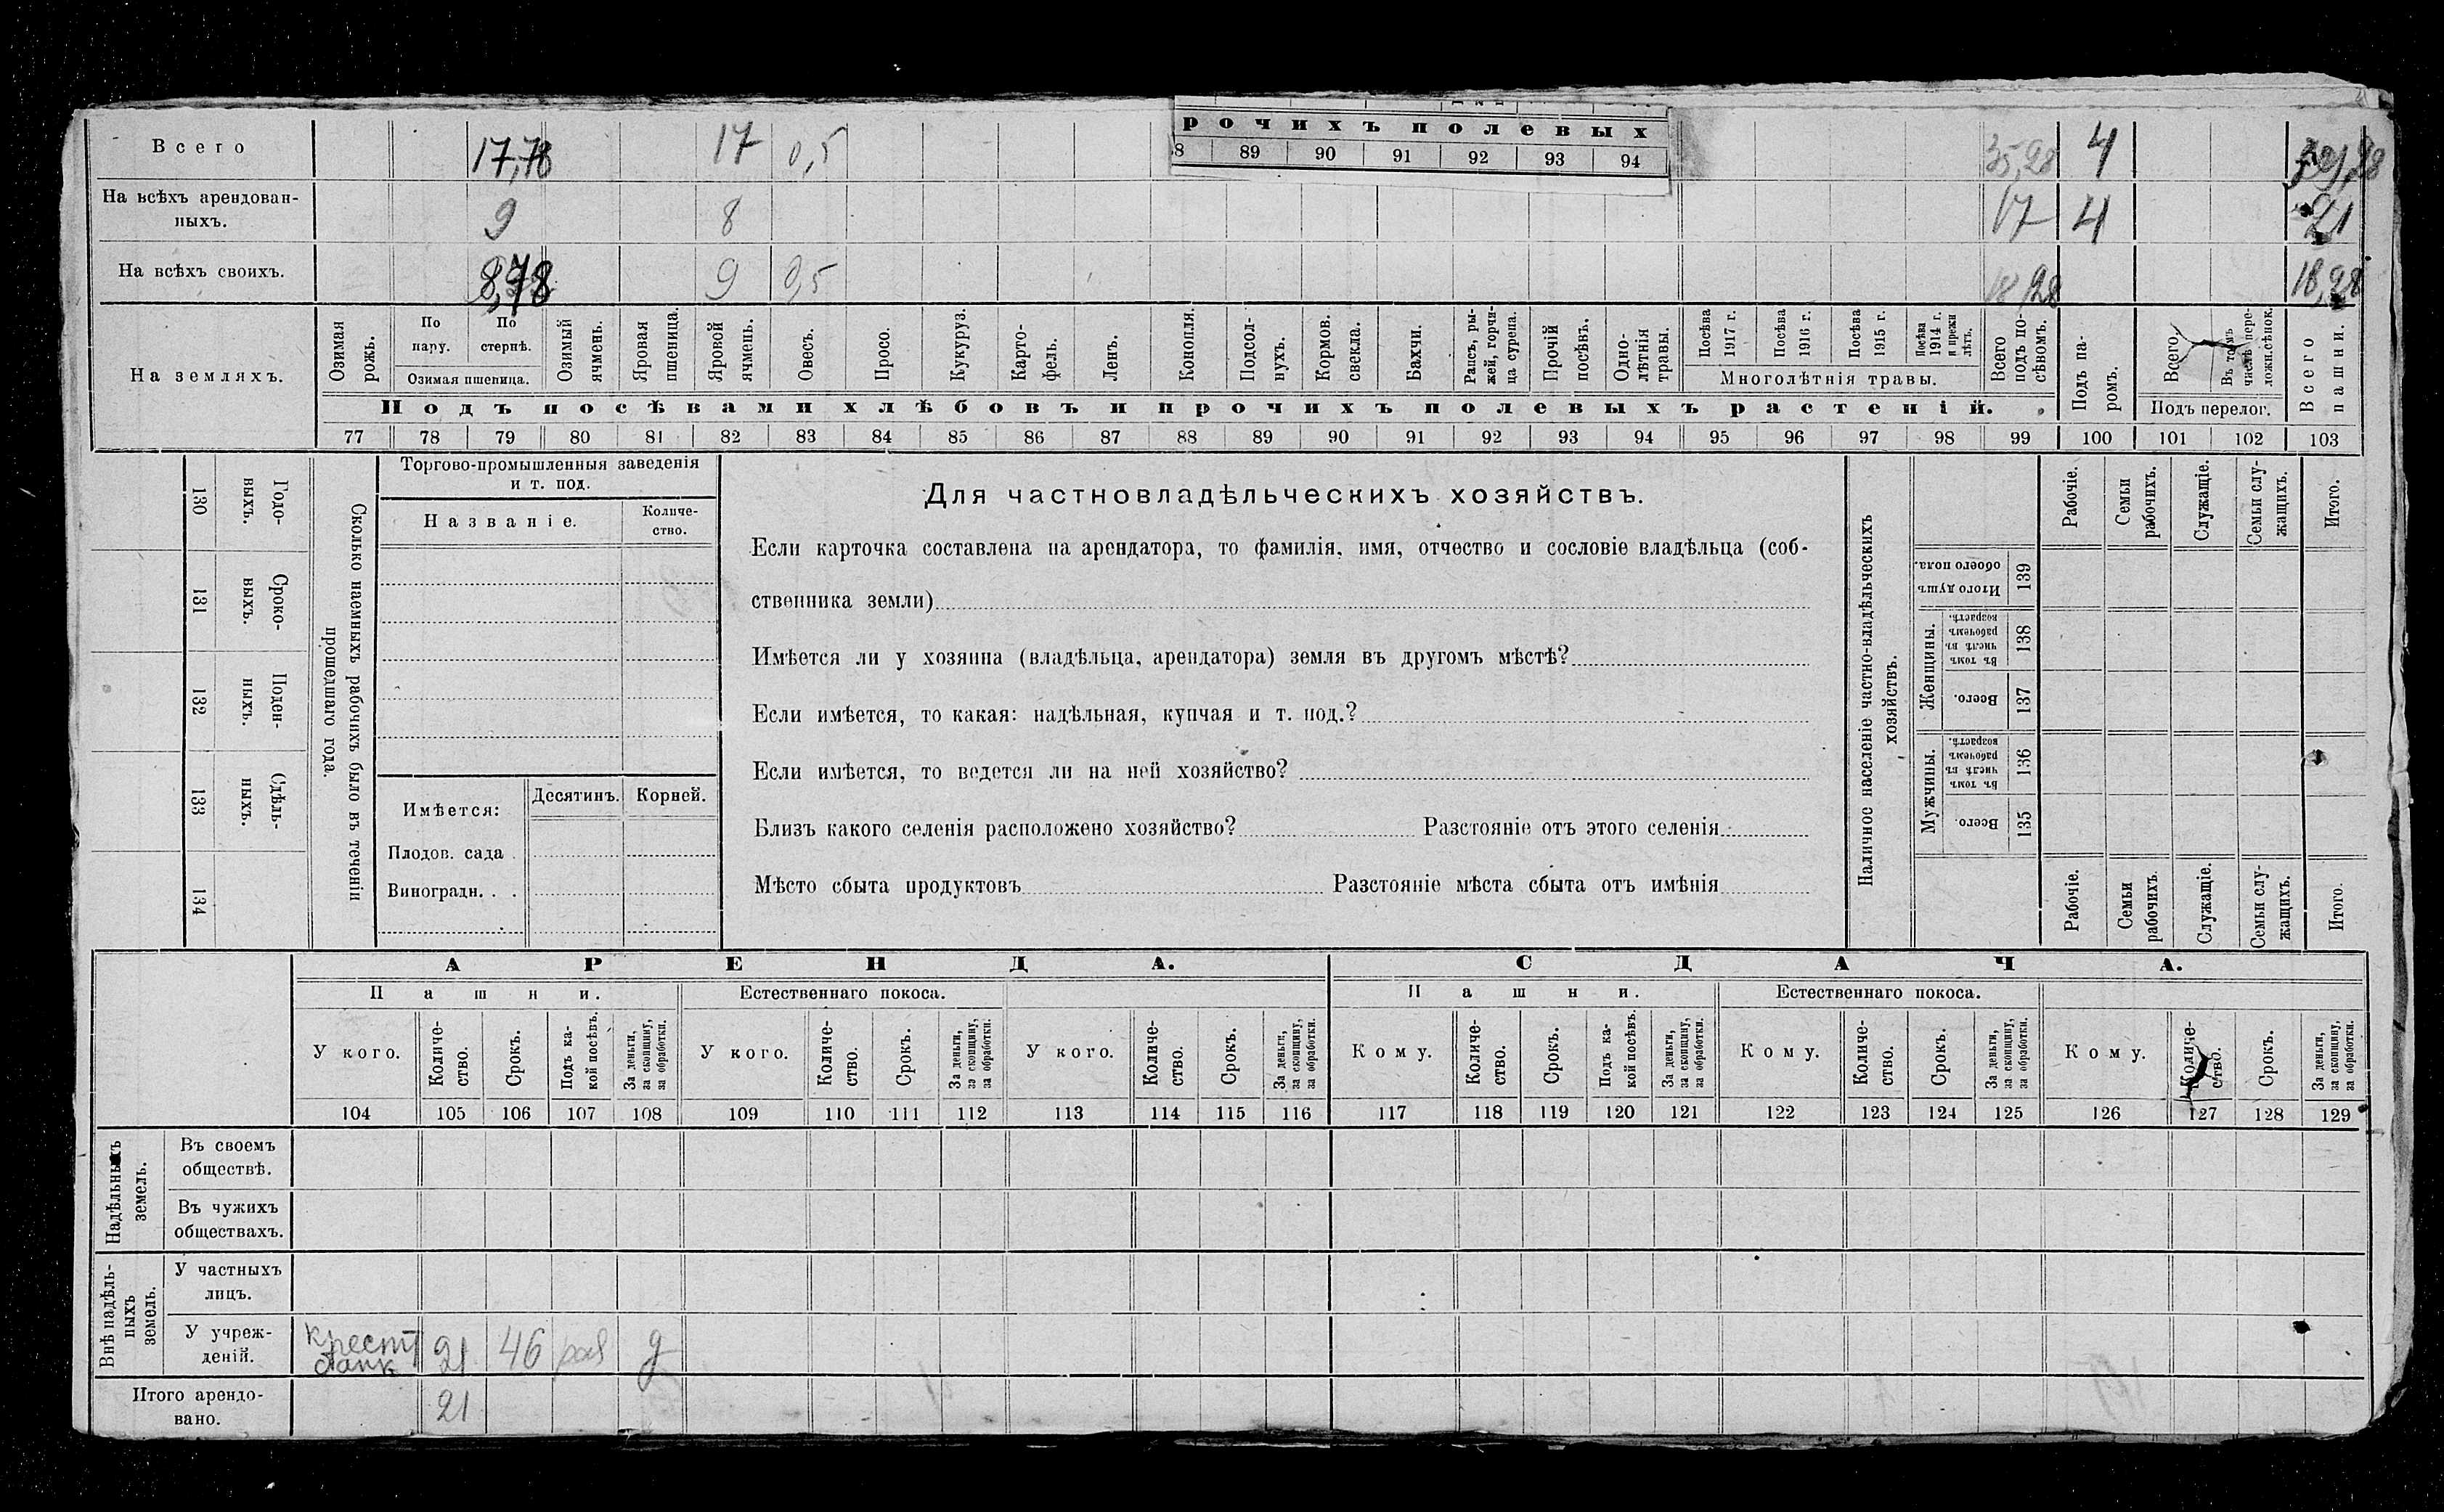 Всего 17,78 17 0,5 35,28 4
рочихъ полевыхъ
89 90 91 92 93 94
На всѣхъ арендован-
ныхъ. 9 8 17 4 21
На всѣхъ своихъ. 8,78 9 0,5 18,28 18,28
На земляхъ.
Озимая рожь.
По пару.
По стернѣ.
Озимая пшеница.
Озимый ячмень.
Яровая пшеница.
Яровой ячмень.
Овесъ.
Просо.
Кукуруз.
Карто-
фель.
Ленъ.
Конопля.
Подсол-
нухъ.
Кормов.
свекла.
Бахчи.
Рапсъ, ры-
жей, горчи-
ца сурепа.
Прочій
посѣвъ.
Одно-
лѣтнія
травы.
Посѣва
1917 г.
Посѣва
1916 г.
Посѣва
1915 г.
Посѣва
1914 г.
и прежн
лѣтъ.
Многолѣтнія травы.
Всего
подъ по-
сѣвомъ.
Подъ па-
ромъ.
Всего.
Въ томъ
числѣ пере-
ложн.сѣнок.
Подъ перелог.
Всего
пашни.
Подъ посѣвами хлѣбовъ и прочихъ полевыхъ растеній.
77 78 79 80 81 82 83 84 85 86 87 88 89 90 91 92 93 94 95 96 97 98 99 100 101 102 103
130 Годо-
выхъ.
131 Сроко-
выхъ.
132 Поден-
ныхъ.
133 Сдѣль-
ныхъ.
134
Сколько наемныхъ рабочихъ было въ теченіи
прошедшаго года.
Торгово-промышленныя заведенія
и т. под.
Названіе.
Количе-
ство.
Имѣется: Десятинъ. Корней.
Плодов. сада .
Виноградн. . .
Для частновладѣльческихъ хозяйствъ.
Если карточка составлена на арендатора, то фамилія, имя, отчество и сословіе владѣльца (соб-
ственника земли)
Имѣется ли у хозяина (владѣльца, арендатора) земля въ другомъ мѣстѣ?
Если имѣется, то какая: надѣльная, купчая и т. под.?
Если имѣется, то ведется ли на ней хозяйство?
Близъ какого селенія расположено хозяйство? Разстояніе отъ этого селенія
Мѣсто сбыта продуктовъ Разстояніе мѣста сбыта отъ имѣнія
Наличное населеніе частно-владѣльческихъ
хозяйствъ.
Рабочіе.
Семьи
рабочихъ.
Служащіе.
Семьи слу-
жащихъ.
Итого.
Итого душъ
обоего пола. 139
Женщины.
Въ томъ
числѣ въ
рабочемъ
возрастѣ. 138
Всего. 137
Мужчины.
Въ томъ
числѣ въ
рабочемъ
возрастѣ. 136
Всего. 135
Рабочіе.
Семьи
рабочихъ.
Служащіе.
Семьи слу-
жащихъ.
Итого.
АРЕНДА. СДАЧА.
Пашни. Естественнаго покоса. Пашни. Естественнаго покоса.
У кого.
Количе-
ство.
Срокъ.
Подъ ка-
кой посѣвъ.
За деньги,
за скопщину,
за обработки.
У кого.
Количе-
ство.
Срокъ.
За деньги,
за скопщину,
за обработки.
У кого.
Количе-
ство.
Срокъ.
За деньги,
за скопщину,
за обработки.
Кому.
Количе-
ство.
Срокъ.
Подъ ка-
кой посѣвъ.
За деньги,
за скопщину,
за обработки.
Кому.
Количе-
ство.
Срокъ.
За деньги,
за скопщину,
за обработки.
Кому.
Количе-
ство.
Срокъ.
За деньги,
за скопщину,
за обработки.
104 105 106 107 108 109 110 111 112 113 114 115 116 117 118 119 120 121 122 123 124 125 126 127 128 129
Надѣльныхъ
земель.
Въ своемъ
обществѣ.
Въ чужихъ
обществахъ.
Внѣ надѣль-
ныхъ
земель.
У частныхъ
лицъ.
У учреж-
деній.
крест
банк 21 46 д
Итого арендо-
вано. 21